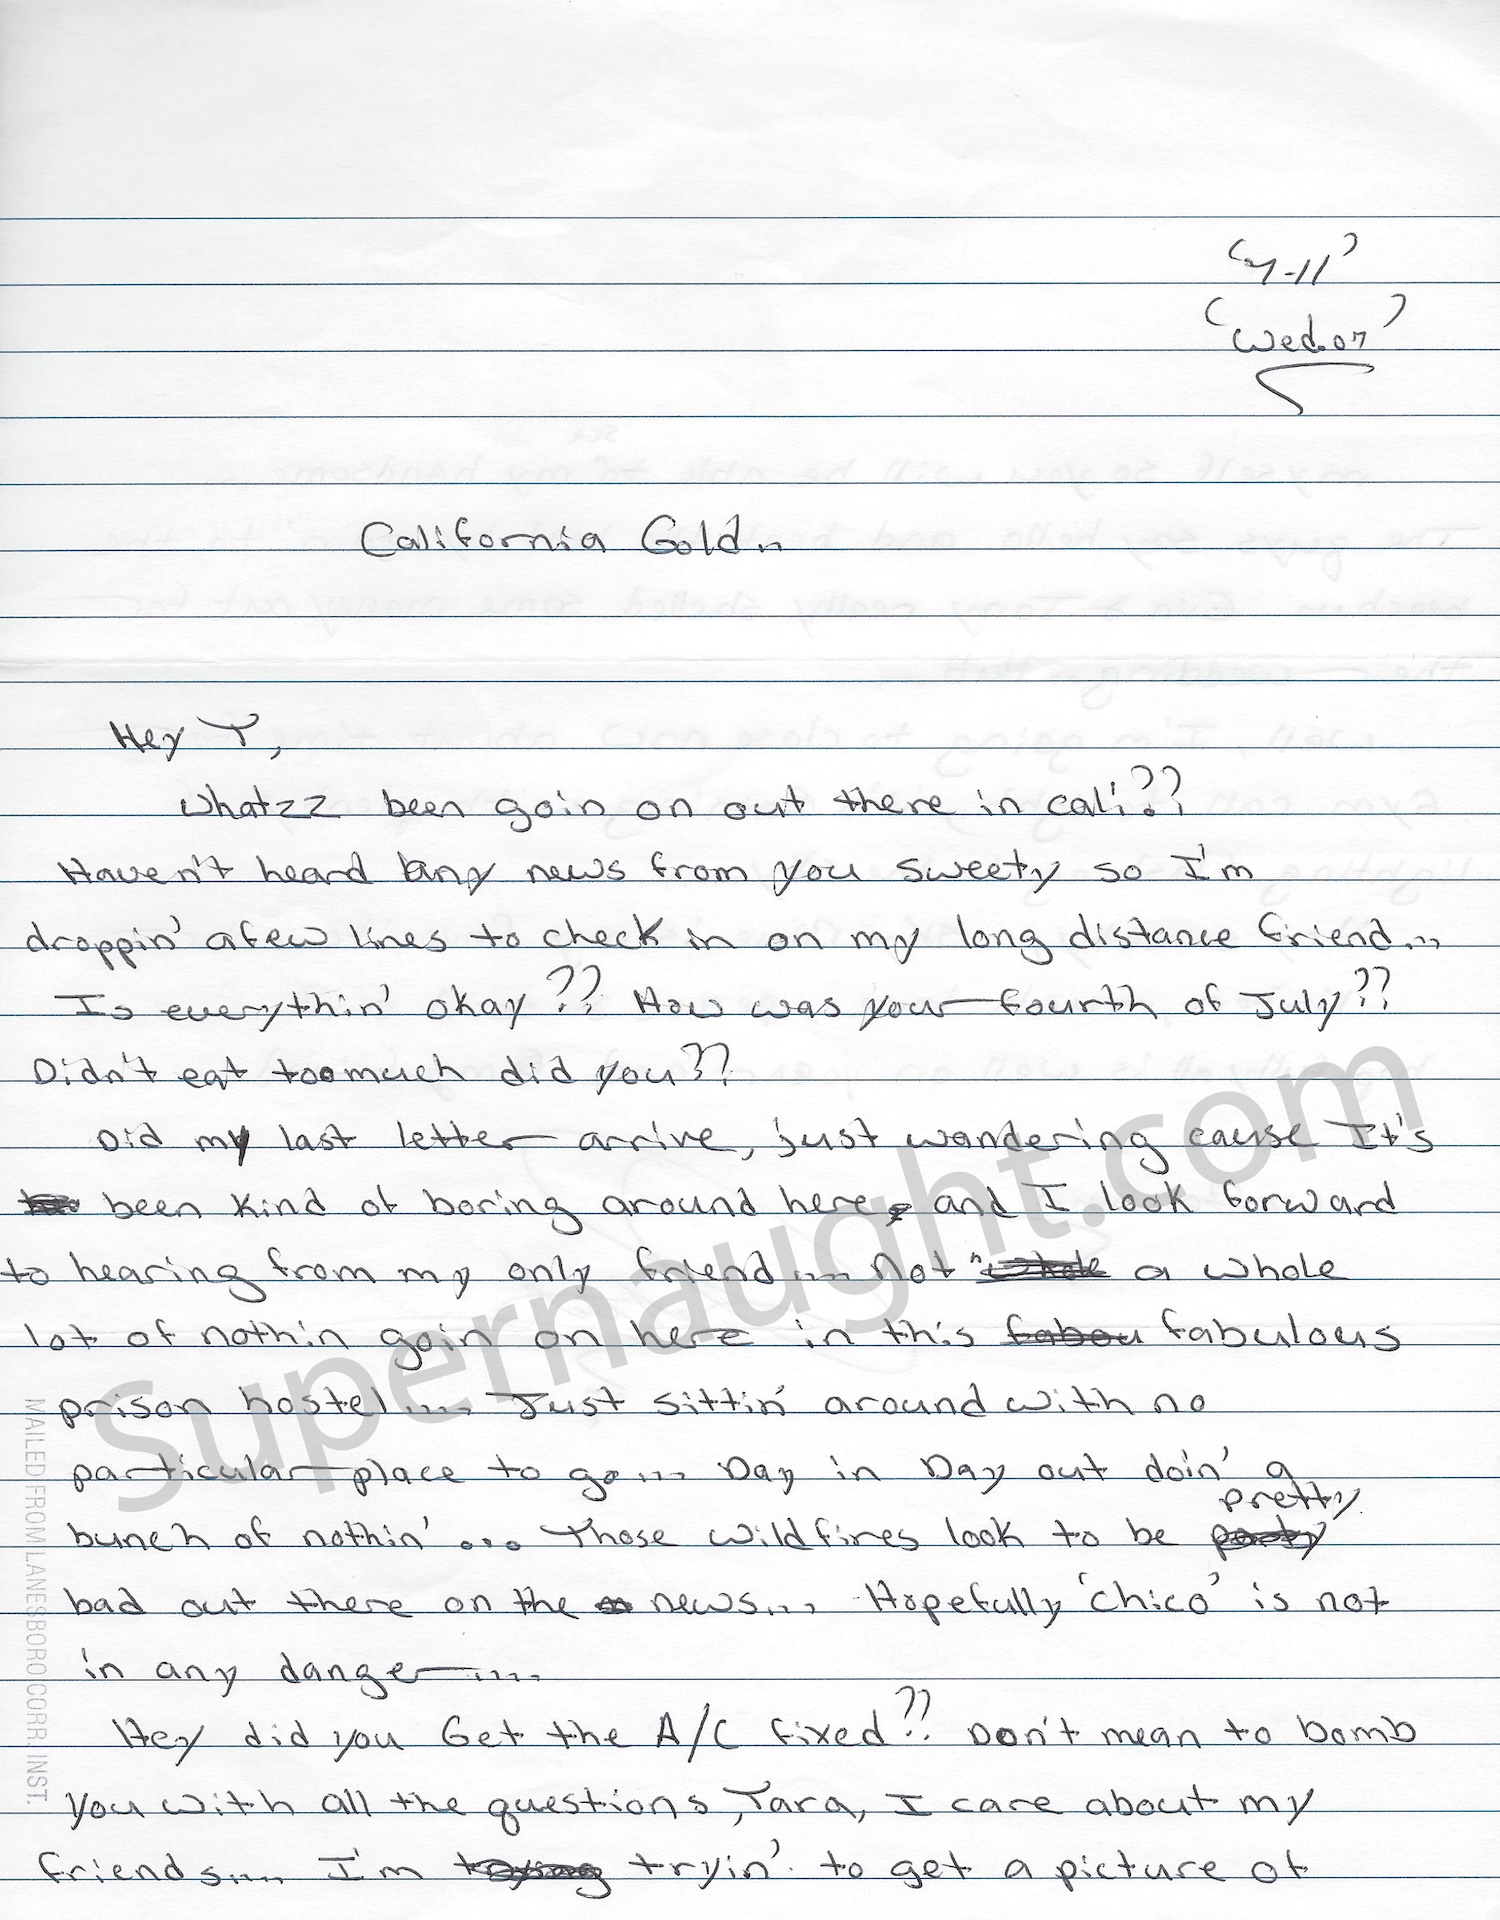 '7-11'
(Wed.07)
California Gold..
Hey T,
Whatzz been goin on out there in cali??
Haven't heard any news from you sweety so I'm
droppin' a few lines to check in on my long distance friend...
Is everythin' okay?? How was your fourth of July??
Didn't eat too much did you??
Did my last letter arrive, just wandering cause It's
been kind of boring around here, and I look forward
to hearing from my only friend.... Not a whole
lot of nothin goin on here in this fabou fabulous
prison hostel.... Just sittin' around with no
particular place to go.... Day in Day out doin' a
pretty
bunch of nothin'... Those wildfires look to be
bad out there on the news... Hopefully 'chico' is not
in any danger....
Hey did you Get the A/C fixed?? Don't mean to bomb
you with all the questions, Tara, I care about my
friends.... I'm tryin' to get a picture of
MAILED FROM LANESBORO CORR. INST.
Supernaught.com